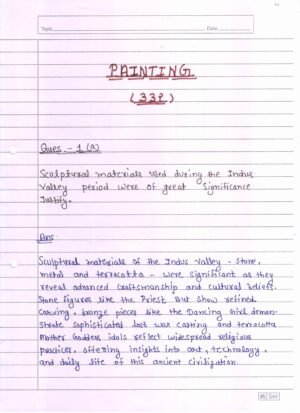 Topic
Date
PAINTING
(332)
Ques - 1 (a)
Sculptural materials used during the Indus
Valley period were of great Significance
Justify.
Ans:
Sculptural materials of the Indus Valley - stone,
metal and terracotta - were significant as they
reveal advanced craftsmanship and cultural beliefs.
Stone figures like the Priest But show refined
carving, bronze pieces like the Dancing Girl demon-
strate sophisticated lost wax casting and terracotta
mother goddess idols reflect widespread religious
practices, offering insights into art, technology,
and daily life of this ancient civilization.